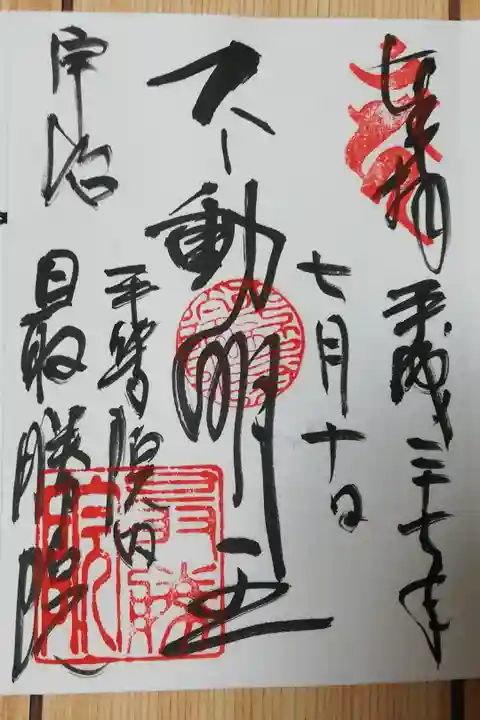 奉拝 平成二十七年
七月十日
不動明王
宇治
平等院内
最勝院
最勝院